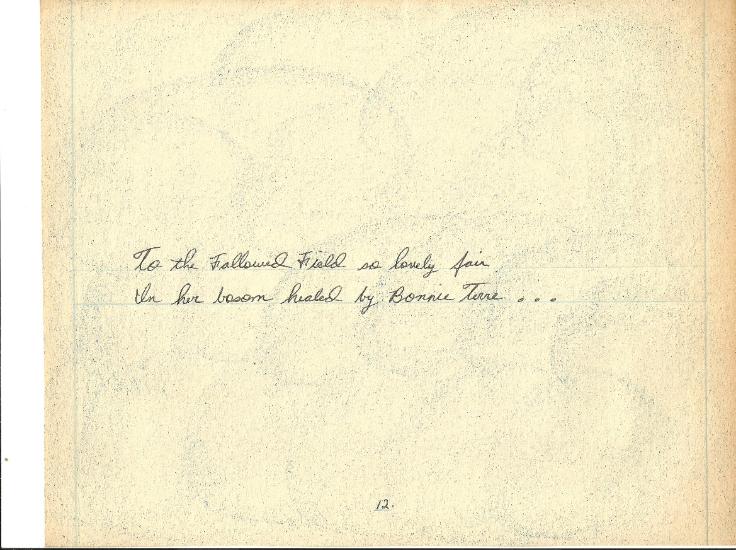 To the Fallowed Field so lovely fair
In her bosom healed by Bonnie Terre . . .
12.